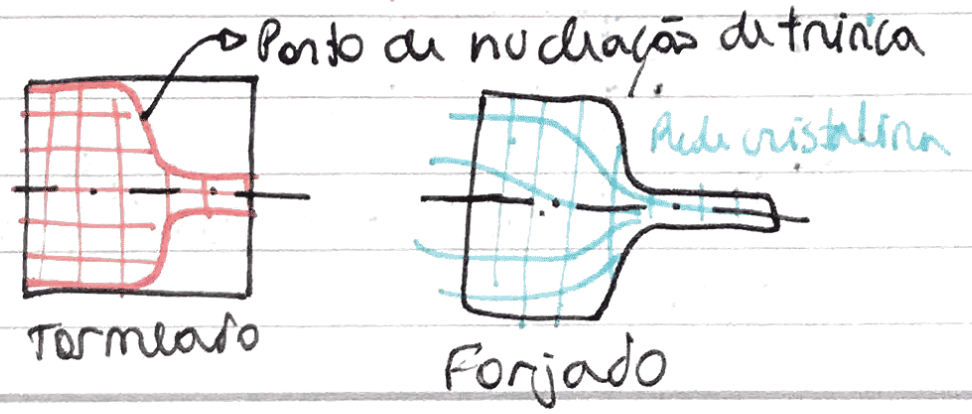 Ponto de nucleação de trinca
Rede cristalina
Torneado
Forjado